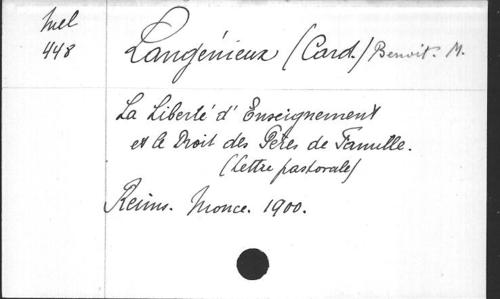 Mel
448
Langénieux (Card.) Benoit. M.
La Liberté d'Enseignement
et le Droit des Pères de Famille.
(Lettre pastorale)
Reims. Monce. 1900.